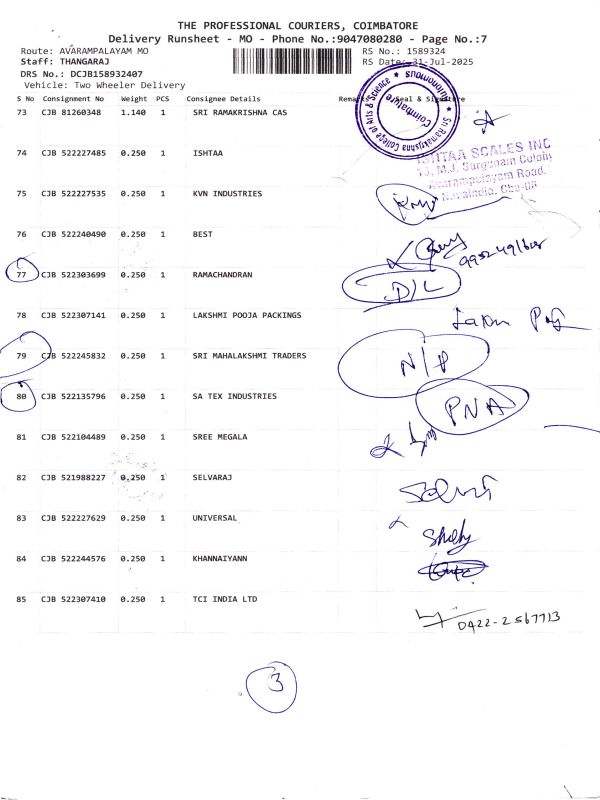 THE PROFESSIONAL COURIERS, COIMBATORE
Delivery Runsheet - MO - Phone No.:9047080280 - Page No.:7
Route: AVARAMPALAYAM MO RS No.: 1589324
Staff: THANGARAJ RS Date: 31-Jul-2025
DRS No.: DCJB158932407
Vehicle: Two Wheeler Delivery
S No Consignment No Weight PCS Consignee Details Remarks Seal & Signature
Sri Ramakrishna College of Arts & Science * Autonomous *
Coimbatore
73 CJB 81260348 1.140 1 SRI RAMAKRISHNA CAS
74 CJB 522227485 0.250 1 ISHTAA
ISHTAA SCALES INC
M.J. Sargunam Colony
Avarampalayam Road,
Navaindia, Cbe-
75 CJB 522227535 0.250 1 KVN INDUSTRIES
76 CJB 522240490 0.250 1 BEST
77 CJB 522303699 0.250 1 RAMACHANDRAN D/L
78 CJB 522307141 0.250 1 LAKSHMI POOJA PACKINGS
79 CJB 522245832 0.250 1 SRI MAHALAKSHMI TRADERS N/P
80 CJB 522135796 0.250 1 SA TEX INDUSTRIES PNA
81 CJB 522104489 0.250 1 SREE MEGALA
82 CJB 521988227 0.250 1 SELVARAJ
83 CJB 522227629 0.250 1 UNIVERSAL
84 CJB 522244576 0.250 1 KHANNAIYANN
85 CJB 522307410 0.250 1 TCI INDIA LTD
0422-2567713
3